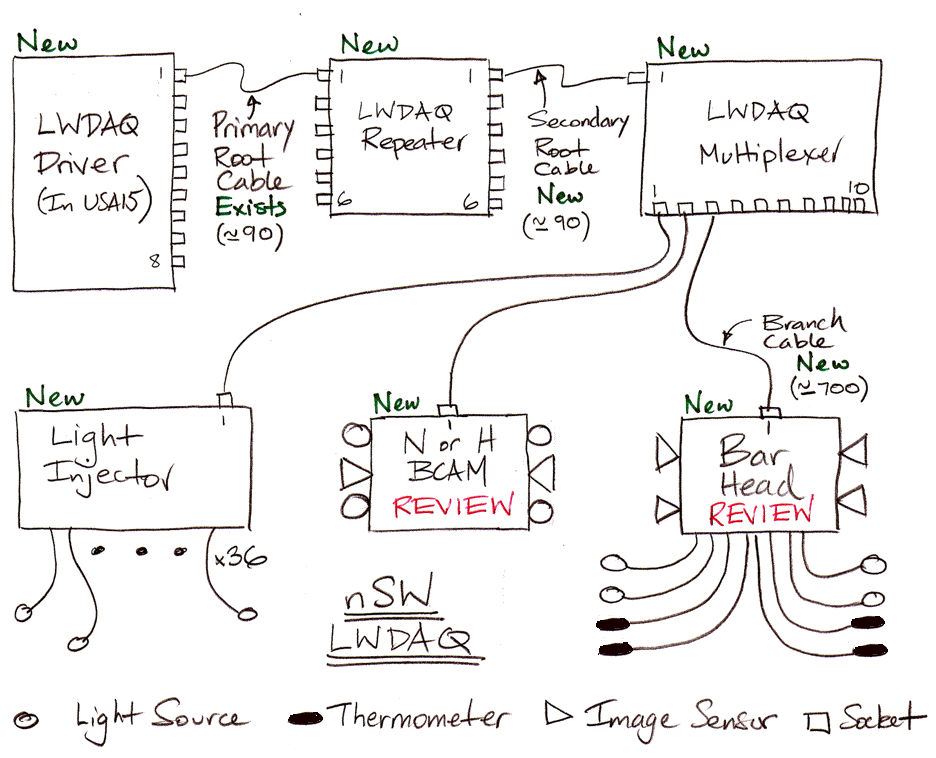 New
LWDAQ
Driver
(In USA15)
1
8
Primary
Root
Cable
Exists
(≃90)
New
1
1
LWDAQ
Repeater
6
6
Secondary
Root
Cable
New
(≃90)
New
1
LWDAQ
Multiplexer
1
10
Branch
Cable
New
(≃700)
New
1
Light
Injector
x36
New
1
N or H
BCAM
REVIEW
New
1
Bar
Head
REVIEW
nSW
LWDAQ
Light Source
Thermometer
Image Sensor
Socket